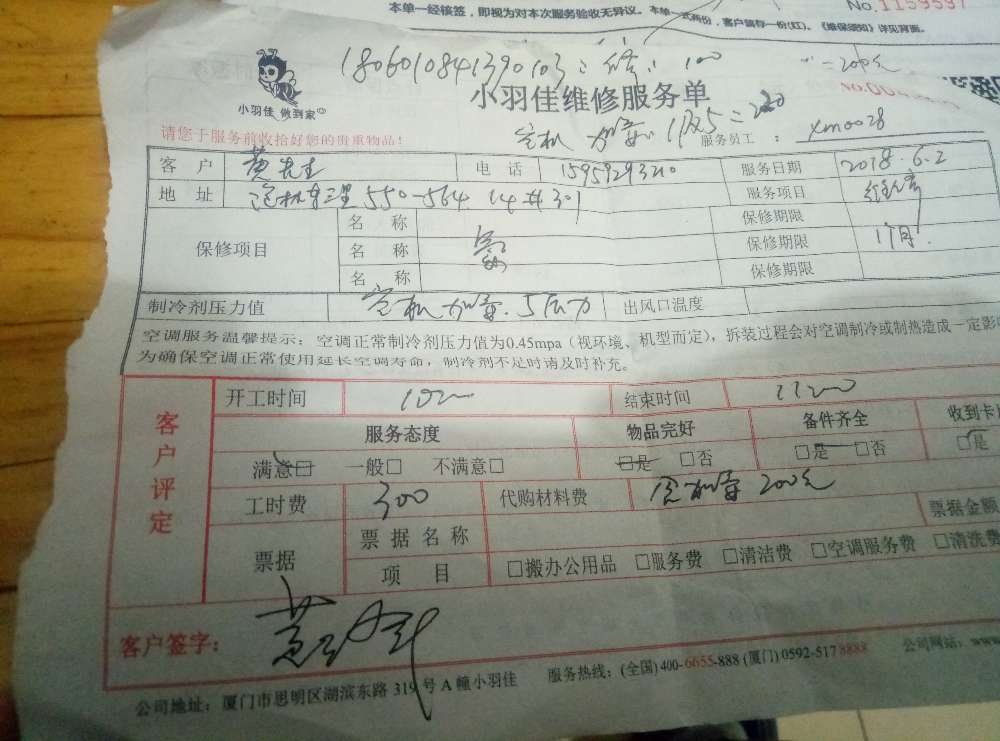 本单一经核签，即视为对本次服务验收无异议。本单一式两份，客户留存一份(红)。《维保须知》详见背面。
No.1159597
180601084139010 修：100 =200元
小羽佳 做到家
小羽佳维修服务单
No.00
请您于服务前收拾好您的贵重物品！
空机 加 =220
服务员工： xm0028
客 户 黄先生 电 话 15959293210 服务日期 2018.6.2
地 址 550-564 14 301 服务项目
保修项目 名 称 保修期限
名 称 保修期限 1个月.
名 称 保修期限
制冷剂压力值 空机加 .5压力 出风口温度
空调服务温馨提示：空调正常制冷剂压力值为0.45mpa（视环境、机型而定），拆装过程会对空调制冷或制热造成一定影
为确保空调正常使用延长空调寿命，制冷剂不足时请及时补充。
客户评定
开工时间 结束时间
服务态度 物品完好 备件齐全 收到卡
满意□ 一般□ 不满意□ □是 □否 □是 □否 □是
工时费 300 代购材料费 200元
票据 票据名称 票据金额
项 目 □搬办公用品 □服务费 □清洁费 □空调服务费 □清洗费
客户签字：
公司地址：厦门市思明区湖滨东路 319 号 A 幢小羽佳 服务热线：(全国)400-6655-888 (厦门)0592-5178888 公司网站：www